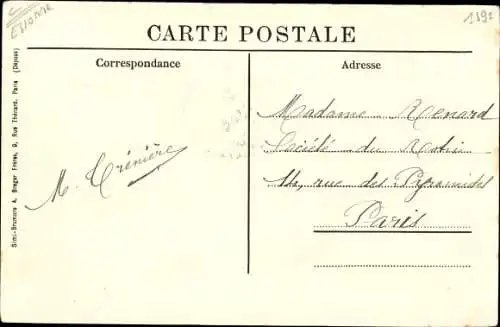 Essonne
1392
CARTE POSTALE
Correspondance
Adresse
Simi-Bromure A. Breger Frères, 9, Rue Thénard, Paris (Déposé)
Madame Renard
Société du
14, rue des Pyramides
Paris
M. Trénière